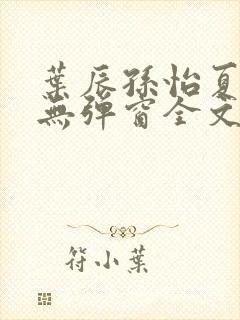 葉辰孫怡夏
無彈窗全文
符小葉